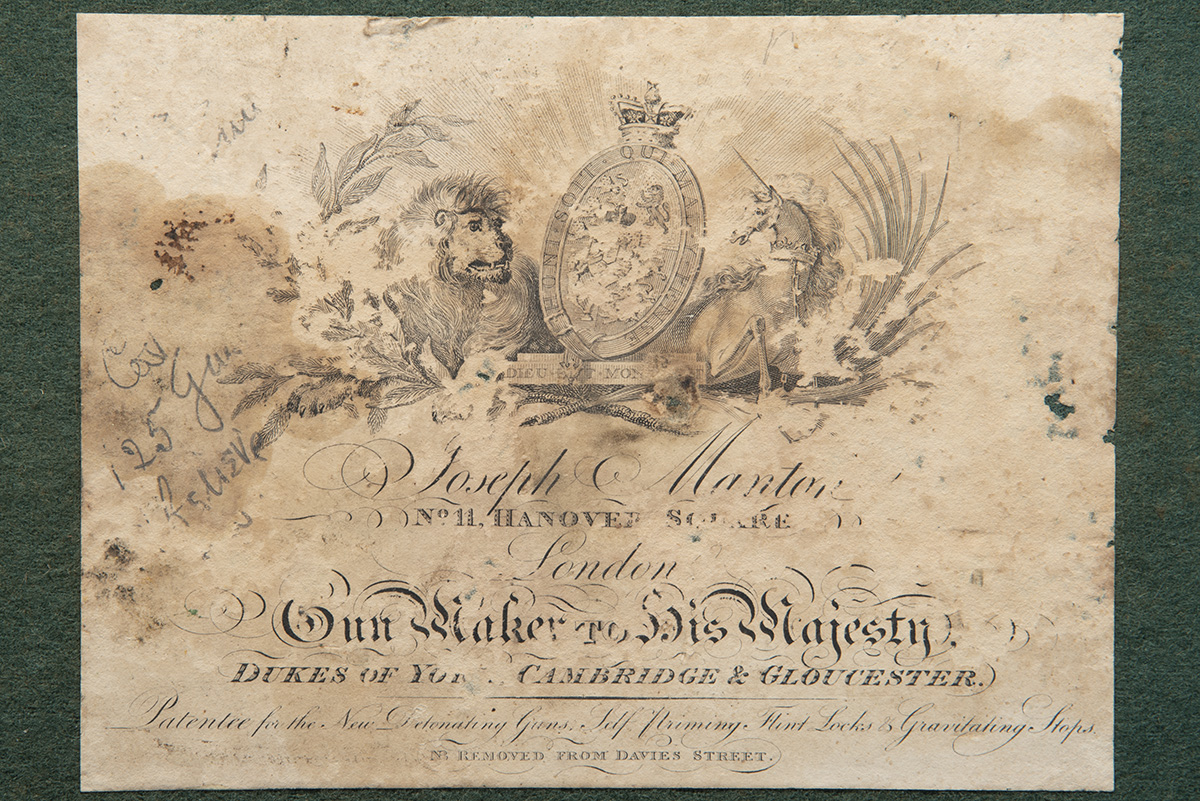 HONI SOIT QUI MAL Y PENSE
DIEU ET MON
Joseph Manton
No. 11, HANOVER SQUARE
London
Gun Maker TO His Majesty.
DUKES OF YORK, CAMBRIDGE & GLOUCESTER.
Patentee for the New Detonating Guns, Self Priming Flint Locks & Gravitating Stops.
NB REMOVED FROM DAVIES STREET.
125